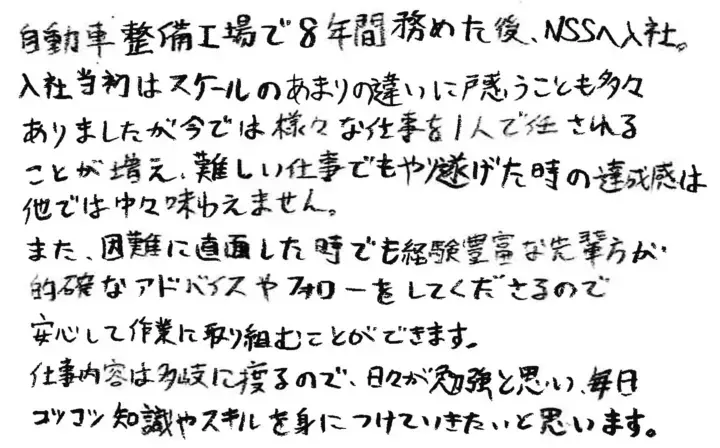 自動車整備工場で8年間務めた後、NSSへ入社。
入社当初はスケールのあまりの違いに戸惑うことも多々
ありましたが今では様々な仕事を1人で任される
ことが増え、難しい仕事でもやり遂げた時の達成感は
他では中々味わえません。
また、困難に直面した時でも経験豊富な先輩方が
的確なアドバイスやフォローをしてくださるので
安心して作業に取り組むことができます。
仕事内容は多岐に度るので、日々が勉強と思い、毎日
コツコツ知識やスキルを身につけていきたいと思います。